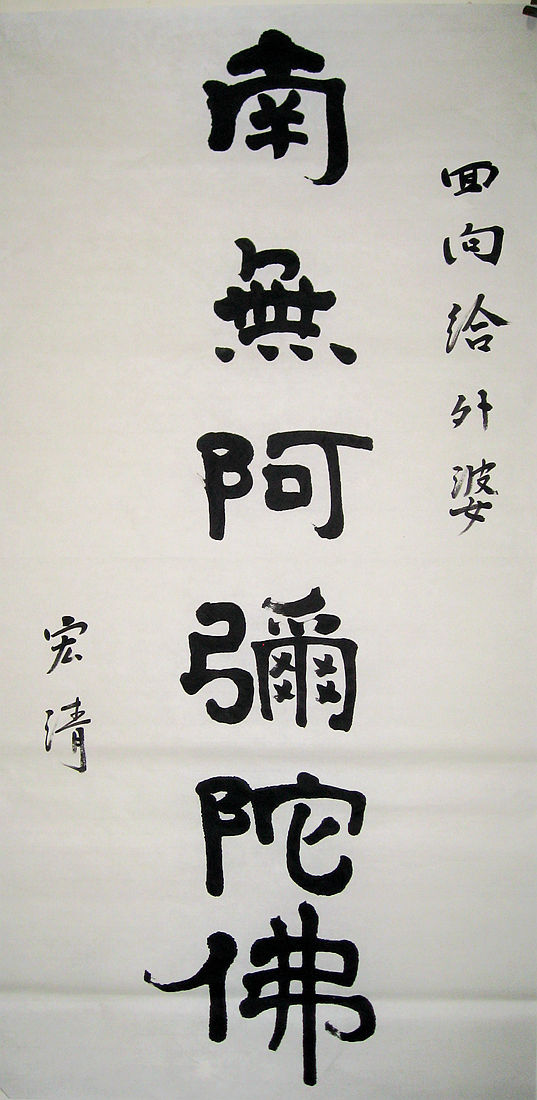 回向给外婆
南無阿彌陀佛
宏清